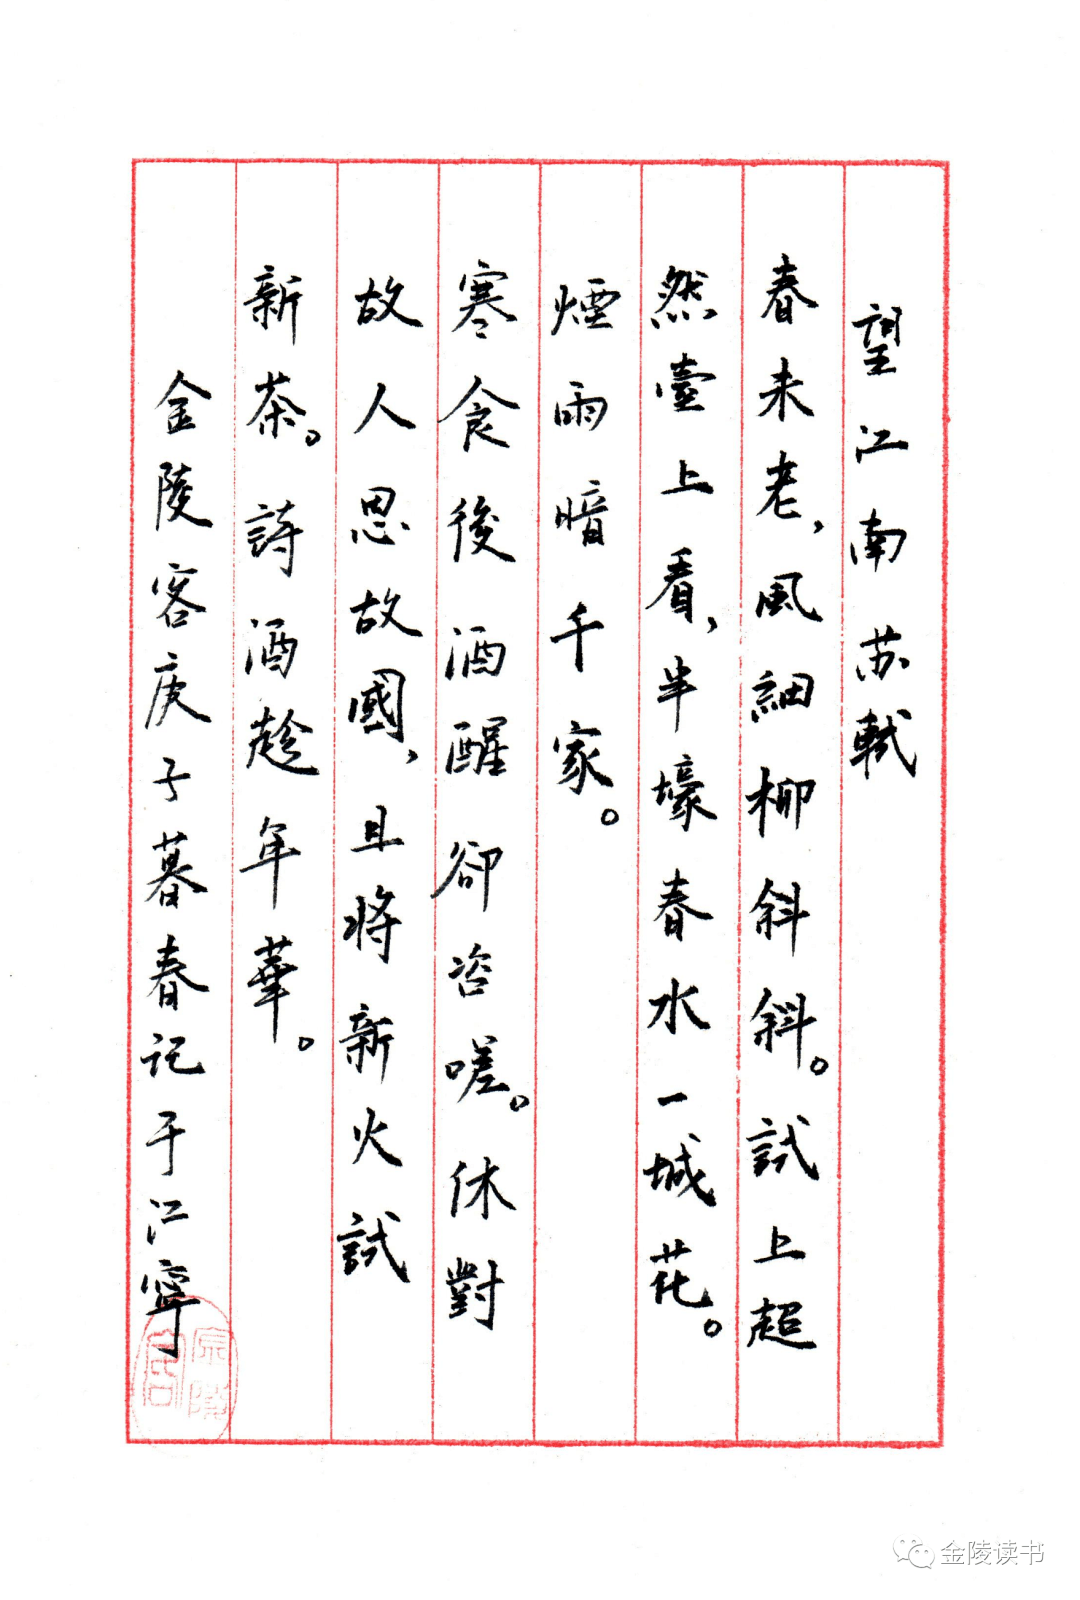 望江南苏軾
春未老，風細柳斜斜。試上超
然臺上看，半壕春水一城花。
煙雨暗千家。
寒食後酒醒卻咨嗟。休對
故人思故國，且將新火試
新茶。詩酒趁年華。
金陵客庚子暮春记于江寧
金陵读书